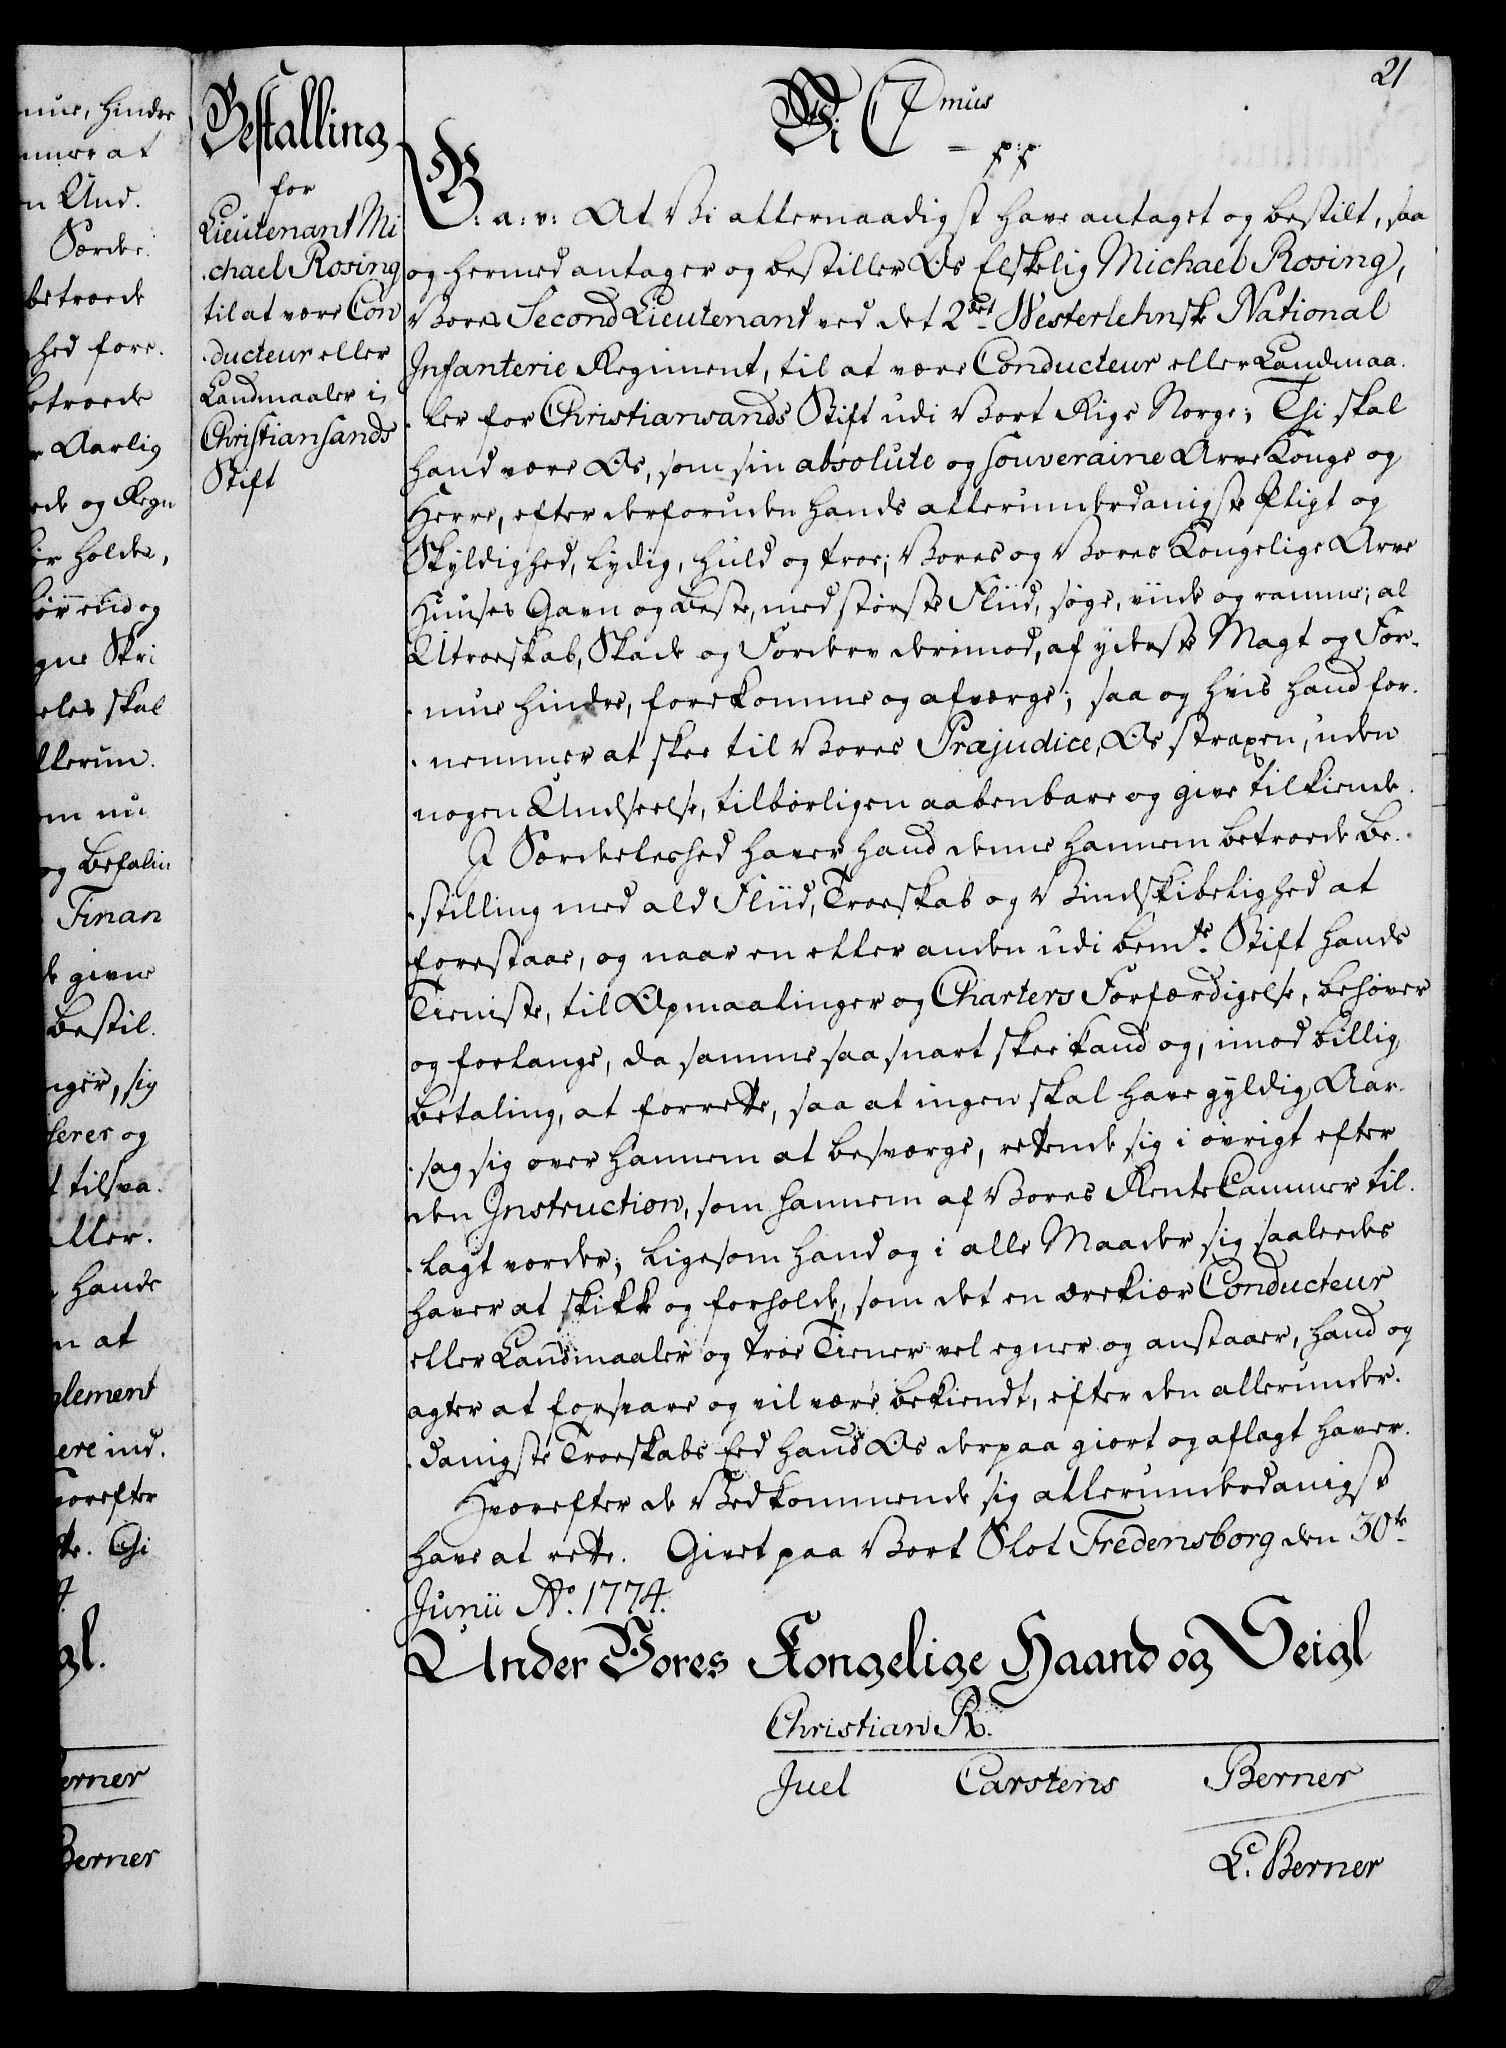 21
nue, hindre
mmer at
n Und.
Særde.
betroede
hed fore.
betroede
Aarlig
ede og Regn
holder,
end og
gne Skri
eles skal
llerun.
om nu
og befalin
Finan
de givne
bestil.
nger, sig
serer og
tilsva.
eller.
hands
n at
glement
ere ind.
vorefter
tte. Thi
gl.
erner
Berner
Bestalling
for
Lieutenant Mi
.chael Rosing
til at være Con
.ducteur eller
Landmaaler i
Christiansands
Stift
Vi C 7mus
p: p:
G: a: v: At Vi allernaadigst have antaget og bestilt, saa
og hermed antager og bestiller Os Elskelig Michael Rosing,
Vores Second Lieutenant ved det 2det Westerlehnske National
Infanterie Regiment, til at være Conducteur eller Landmaa.
.ler for Christiansands Stift udi Vort Rige Norge; Thi skal
hand være Os, som sin absolute og souveraine Arve Konge og
Herre, efter derforuden hands allerunderdanigste Pligt og
Skyldighed, lydig, huld og troe; Vores og Vores Kongelige Arve
Huuses Gavn og beste, med største Fliid, søge, viide og ramme; al
Utroeskab, Skade og Forderv derimod, af yderste Magt og For-
.mue hindre, forekomme og afværge; saa og hvis hand for.
.nemmer at skee til Vores Præjudice, Os straxen, uden
nogen Undseelse, tilbørligen aabenbare og give tilkiende.
I Særdeleshed haver hand denne hannem betroede Be.
.stilling med ald Fliid, Troeskab og Vindskibelighed at
forestaae, og naar en eller anden udi bemte Stift hands
Tieniste, til Opmaalinger og Charters Forfærdigelse, behøver
og forlange, da samme saa snart skee kand og, imod billig
betaling, at forrette, saa at ingen skal have gyldig Aar.
.sag sig over hannem at besværge, rettende sig i øvrigt efter
den Instruction, som hannem af Vores Rente Cammer til.
.lagt vorder; ligesom hand og i alle Maader sig saaledes
haver at skikke og forholde, som det en ærekiær Conducteur
eller Landmaaler og troe Tiener vel egner og anstaaer, hand og
agter at forsvare og vil være bekiendt, efter den allerunder.
.danigste Troeskabs Eed hand Os derpaa giort og aflagt haver.
Hvorefter de Vedkommende sig allerunderdanigst
have at rette. Givet paa Vort Slot Fredensborg den 30te
Junii Ao. 1774.
Under Vores Kongelige Haand og Seigl
Christian R.
Juel Carstens Berner
L. Berner